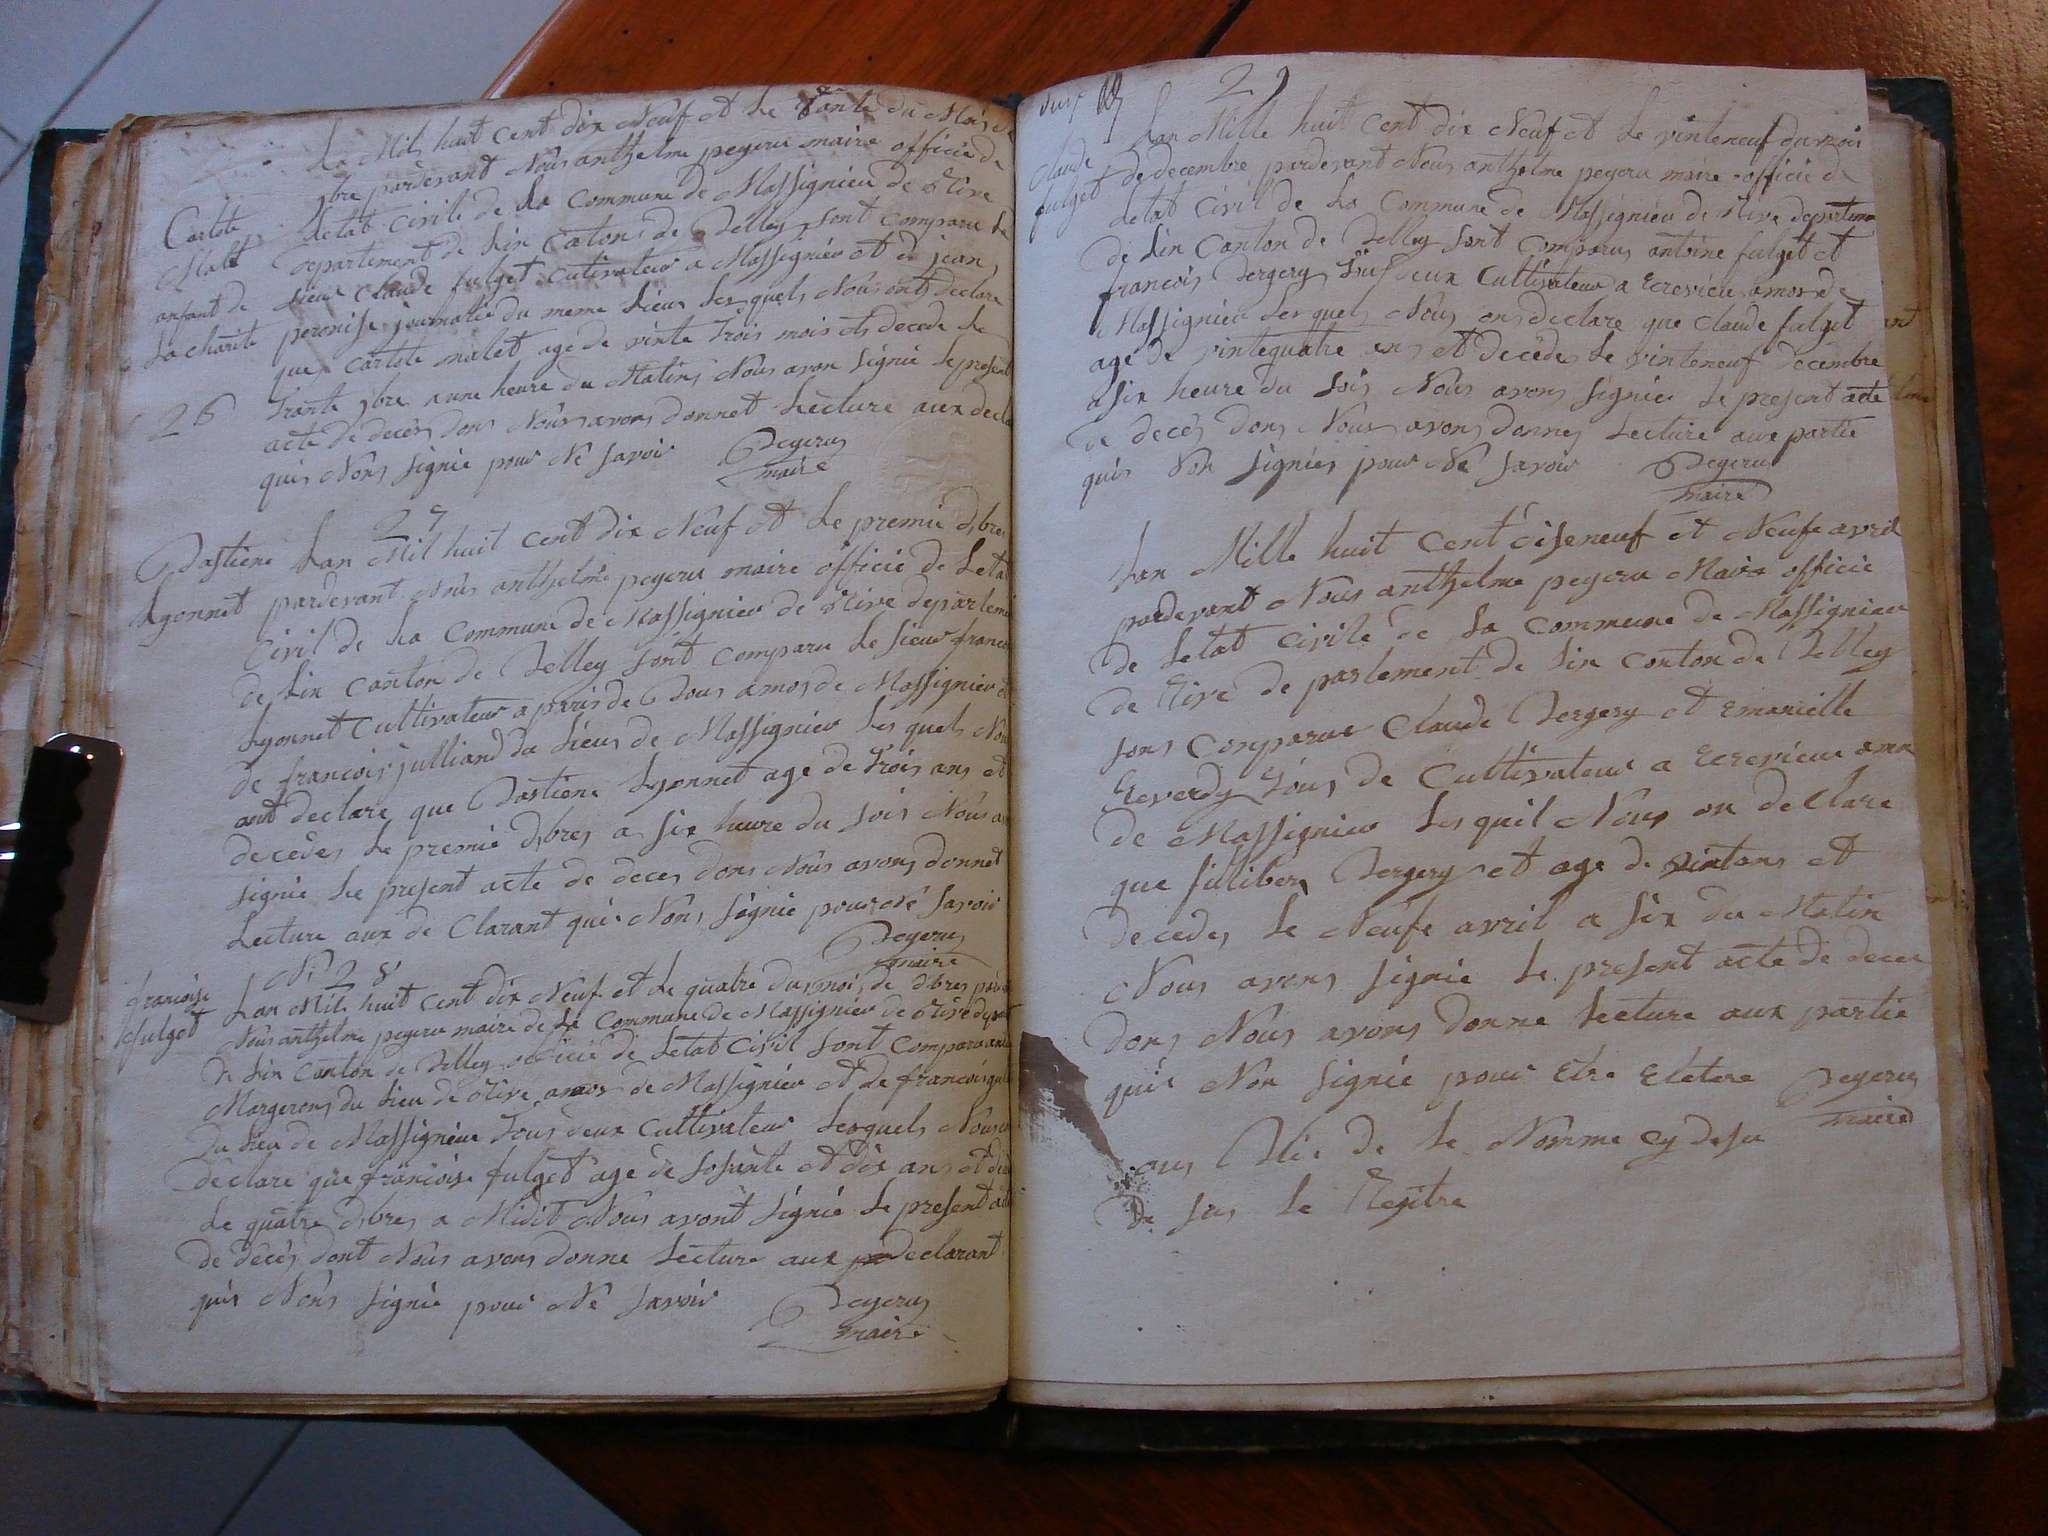 Lan Mil huit cent dix Neuf et Le trante du Mois de
9bre pardevant Nous anthelme pegeru maire officié de
Letat Civile de La Commune de Massignieu de Rive
departement de Lin Canton de Belley sont Comparu Le
sieur Claude fulget Cultivateur a Massignieu et de jean
peronise journalié du meme Lieux Les quels Nous ont declare
que Carlote malet age de vinte Trois mois et decede Le
Trante 9bre a une heure du Matins Nous avon signié Le present
acte de decès dons Nous avons donnet Lecture aux decla
quis Nons signié pour Né savoir Pegeru
maire
Carlote
Malet
anfant de
La charité
26
27
Bastiene
Lyonnet
Lan Mil huit cent dix Neuf et Le premie Dbre
pardevant Nous anthelme pegeru maire officié de Letat
Civil de La Commune de Massignieu de Rive departeme
de Lin Canton de Belley sont Comparu Le sieur francoi
Lyonnet Cultivateur a paris de Dous amos de Massignieu et
de francois julliand du Lieux de Massignieu Les quels Nous
ont declare que Bastiene Lyonnet age de Trois ans et
decèdes Le premié Dbres a six heure du soir Nous av
signié Le present acte de deces dons Nous avons donnet
Lecture aux de Clarant quis Nons signié pour Né savoir
Pegeru
maire
N. 28
francoise
fulget
Lan Mil huit cent dix Neuf et Le quatre du mois de Dbres parde
Nous anthelme pegeru maire de La Commune de Massignieu de Rive depart
de Lin Canton de Belley officié de Letat Civil sont Comparu
Margerons du Lieu de Rive amos de Massignieu et de francois
du Lieu de Massignieu Tous deux Cultivateur Lesquels Nous
declare que francoise fulget age de soisante et dix ans et de
Le quatre Dbres a Midit Nous avont signié Le present acte
de decès dont Nous avons donne Lecture aux declarant
quis Nons signié pour Né savoir Pegeru
maire
29
Claude
fulget
Lan Mille huit Cent dix Neuf et Le vinteneuf du mois
de decembre pardevant Nous anthelme pegeru maire officié de
Letat Civil de La Commune de Massignieu de Rive departeme
de Lin Canton de Belley sont Comparus antoine fulget et
francois Bergery Tous deux Cultivateur a Ecrevieu amos de
Massignieu Les quels Nous ons declare que Claude fulget
age de vintequatre ans et decèdes Le vinteneuf decembre
a six heure du soir Nous avons signiés Le present acte
de decès dons Nous avons donnes Lecture aux partie
quis Non signiés pour Né savoir Pegeru
maire
Lan Mille huit Cent diseneuf et Neufe avril
pardevant Nous anthelme pegeru Maire officié
de Letat Civile de La Commune de Massignieu
de Rive de parlement de Lin Conton de Belley
sons Comparue Claude Bergery et Emanielle
Reverdy Tous de Cultivateur a Ecrevieux amos
de Massignieu Les quil Nous on deClare
que filibers Bergery et age de vintans et
decedes Le Neufe avril a six du Matin
Nous avons signié Le present acte de deces
dons Nous avons donne Lecture aux partie
quis Non signié pour Etre Eletere Pegeru
maire
Blié de Le Nomme cy desu
De sus Le Regitre